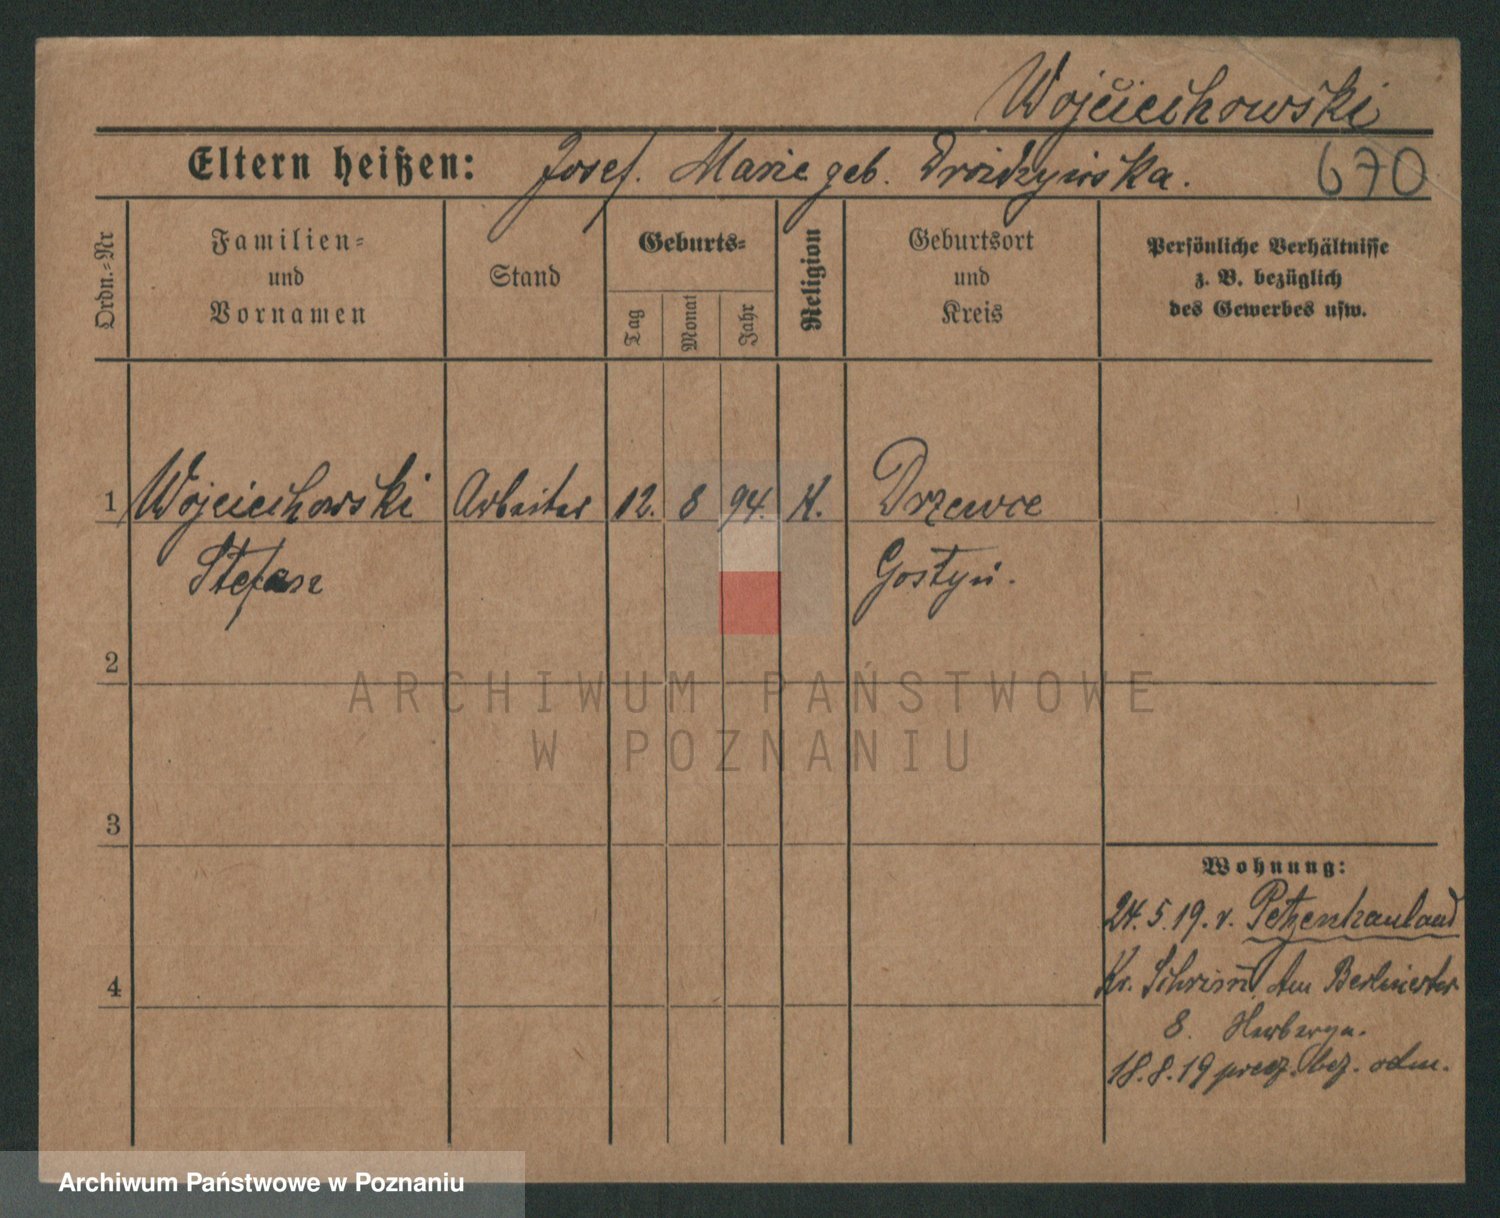 Wojciechowski
Eltern heißen: Josef. Marie geb.
670
Ordn.-Nr
Familien-
und
Vornamen
Stand
Geburts-
Tag
Monat
Jahr
Religion
Geburtsort
und
Kreis
Persönliche Verhältnisse
z. B. bezüglich
des Gewerbes usw.
1 Wojciechowski Arbeiter 12. 8 94. K. Drzewce
Stefan Gostyń.
2
ARCHIWUM PAŃSTWOWE
W POZNANIU
3
Wohnung:
24.5.19. v. Petzenhauland
4
Kr. Schrim̄, Am Berlinertor
8. Herberge.
18.8.19 bez. odm.
Archiwum Państwowe w Poznaniu